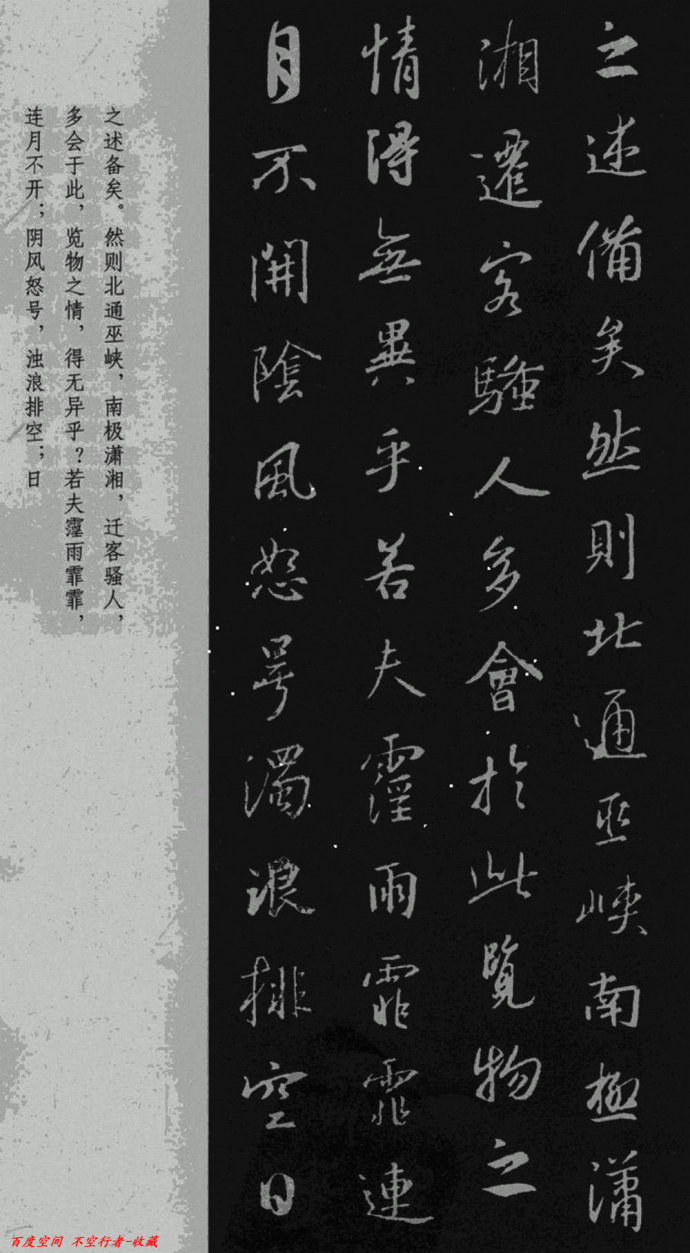 之述備矣然則北通巫峽南極瀟
湘遷客騷人多會於此覽物之
情得無異乎若夫霪雨霏霏連
月不開陰風怒号濁浪排空日
之述备矣。然则北通巫峡，南极潇湘，迁客骚人，
多会于此，览物之情，得无异乎？若夫霪雨霏霏，
连月不开；阴风怒号，浊浪排空；日
百度空间 不空行者-收藏